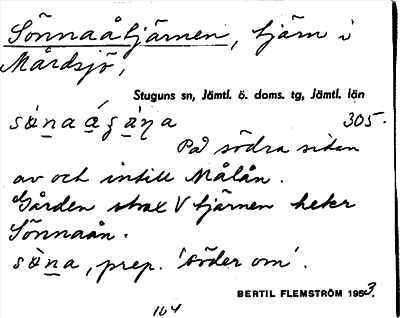 Sönnaåtjärnen, tjärn i
Mårdsjö,
Stuguns sn, Jämtl. ö. doms. tg, Jämtl. län
305.
På södra sidan
av och intill Målån.
Gården strax V tjärnen heter
Sönnaån.
prep. 'söder om'.
BERTIL FLEMSTRÖM 1953.
164